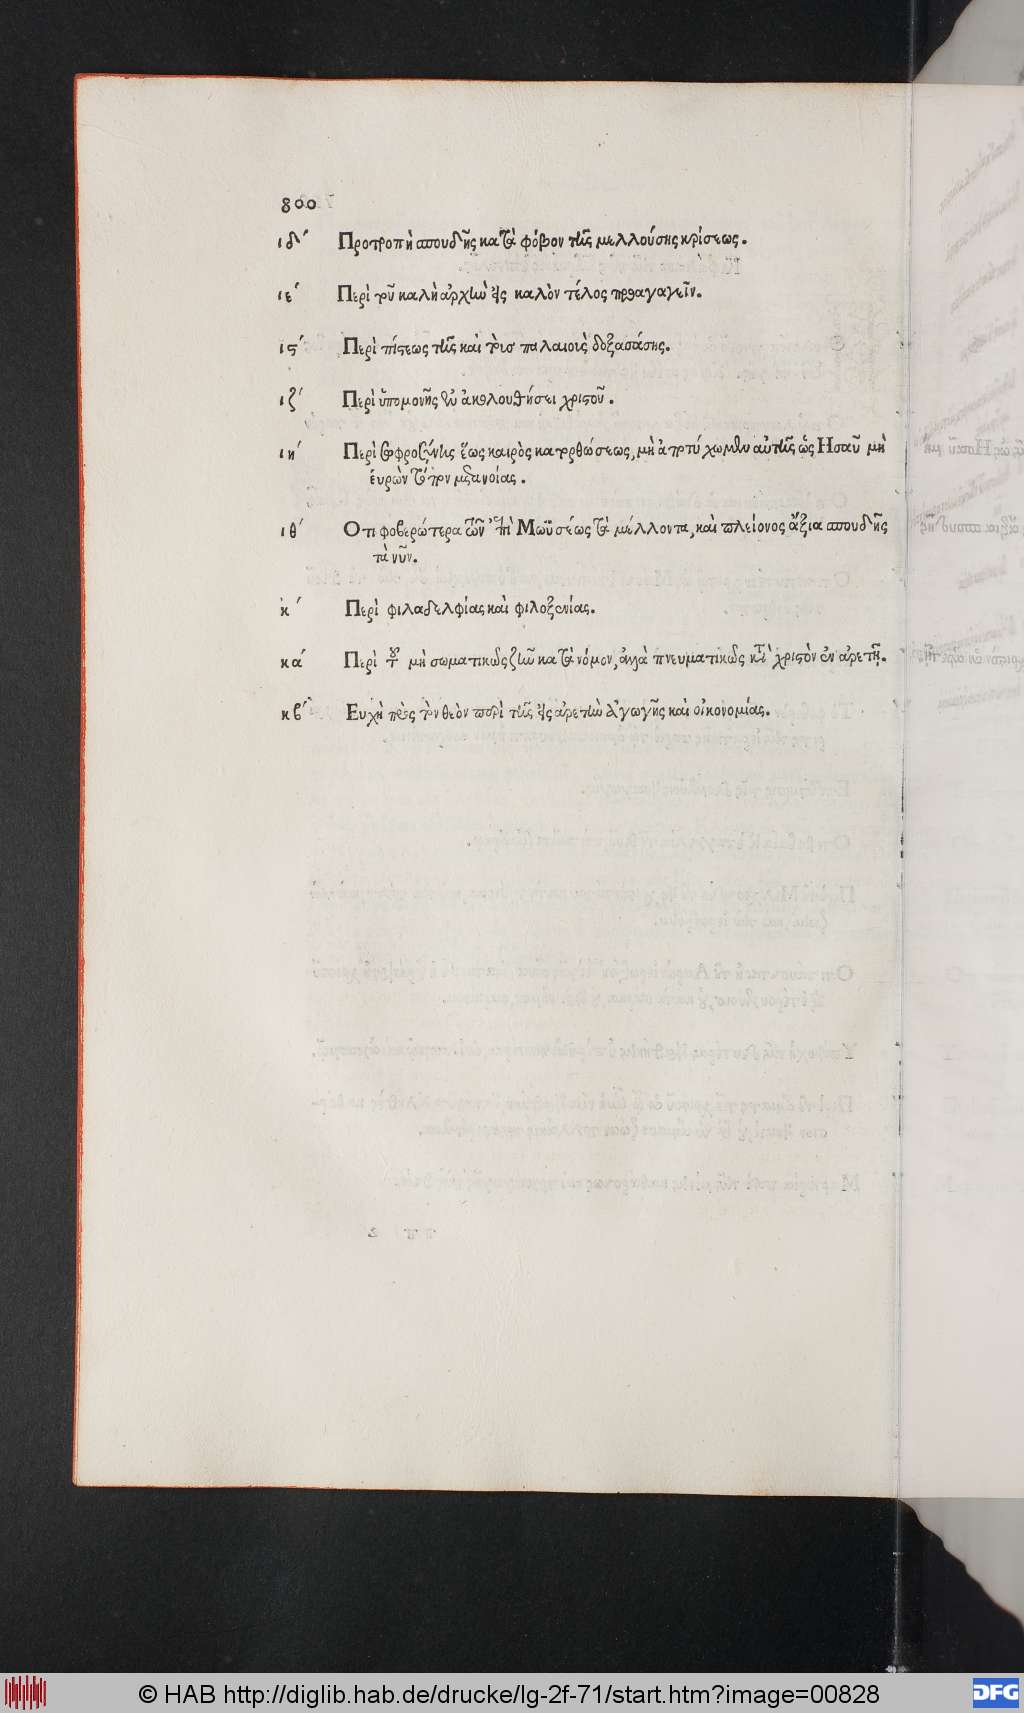 800
ιδʹ Προτροπὴ σπουδῆς κατὰ φόβον τῆς μελλούσης κρίσεως.
ιεʹ Περὶ τοῦ καλὴ ἀρχὴν εἰς καλὸν τέλος προαγαγεῖν.
ιϛʹ Περὶ πίστεως τῆς καὶ τοὺς παλαιοὺς δοξασάσης.
ιζʹ Περὶ ὑπομονῆς ἐν ἀκολουθήσει χριστοῦ.
ιηʹ Περὶ σωφροσύνης ἕως καιρὸς κατορθώσεως, μὴ ἀποτύχωμεν αὐτῆς ὡς Ησαῦ μὴ
εὑρὼν τόπον μετανοίας.
ιθʹ Οτι φοβερώτερα τῶν ἐπὶ Μωϋσέως τὰ μέλλοντα, καὶ πλείονος ἄξια σπουδῆς
τὰ νῦν.
κʹ Περὶ φιλαδελφίας καὶ φιλοξενίας.
καʹ Περὶ τοῦ μὴ σωματικῶς ζῆν κατὰ νόμον, ἀλλὰ πνευματικῶς κατὰ χριστὸν ἐν ἀρετῇ.
κβʹ Ευχὴ πρὸς τὸν θεὸν περὶ τῆς εἰς ἀρετὴν ἀγωγῆς καὶ οἰκονομίας.
© HAB http://diglib.hab.de/drucke/lg-2f-71/start.htm?image=00828
DFG